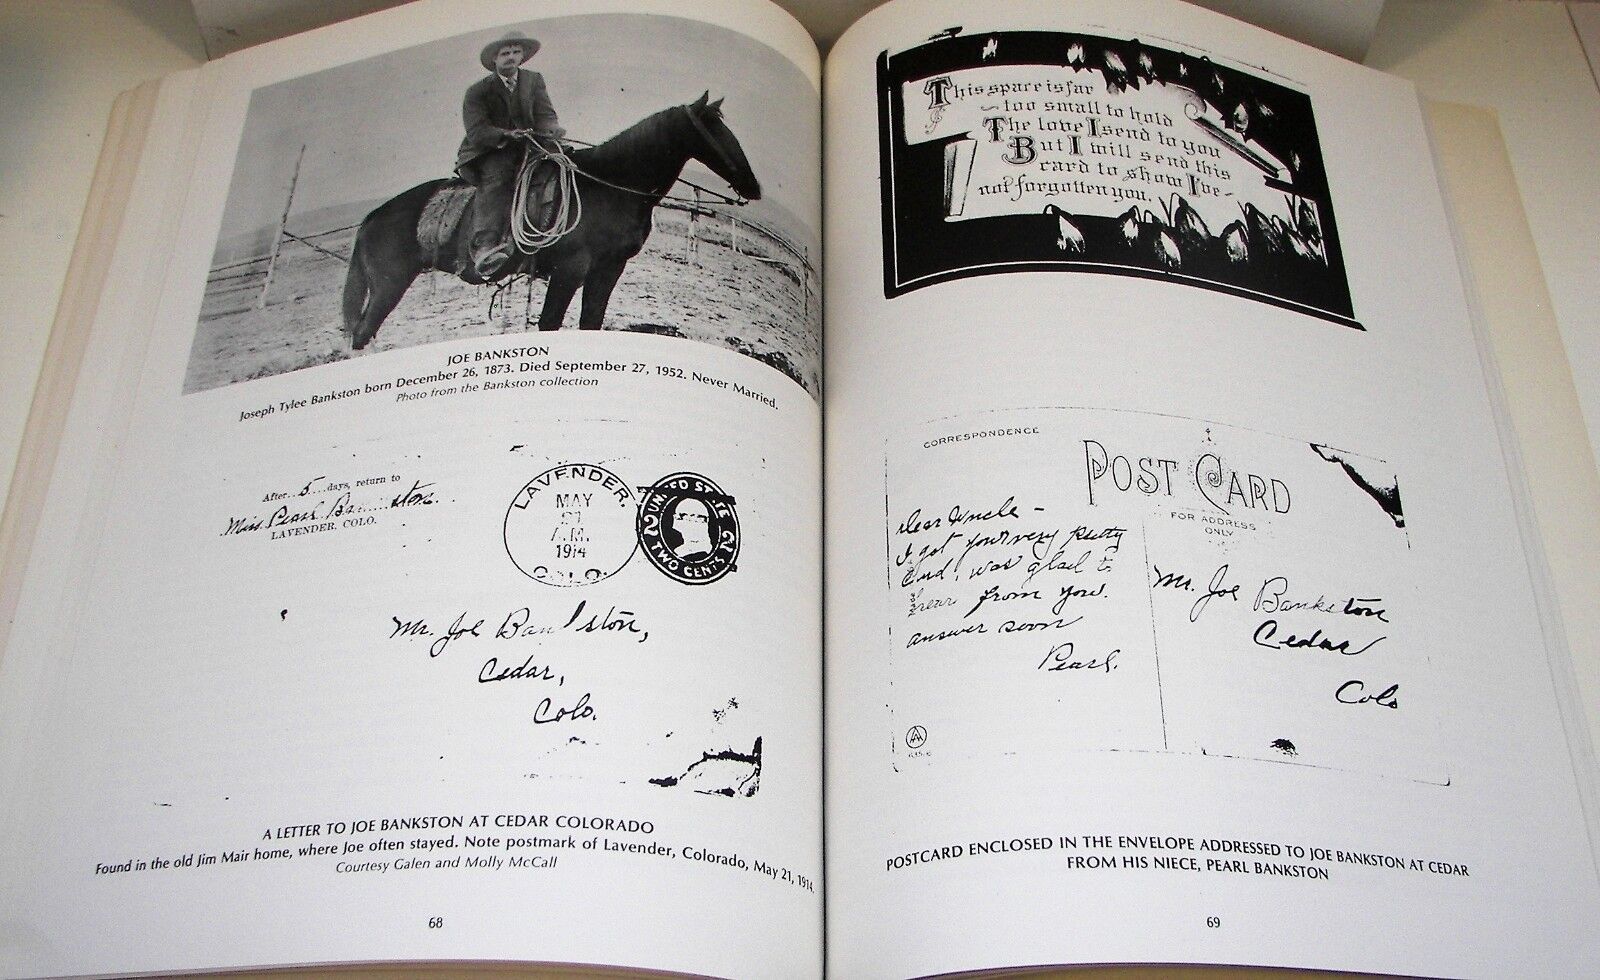 JOE BANKSTON
Joseph Tylee Bankston born December 26, 1873. Died September 27, 1952. Never Married.
Photo from the Bankston collection
After 5 days, return to
Miss Pearl Bankston.
LAVENDER, COLO.
LAVENDER.
MAY
21
A.M.
1914
COLO.
UNITED STATE
2 2
TWO CENTS
Mr. Joe Bankston,
Cedar,
Colo.
A LETTER TO JOE BANKSTON AT CEDAR COLORADO
Found in the old Jim Mair home, where Joe often stayed. Note postmark of Lavender, Colorado, May 21, 1914.
Courtesy Galen and Molly McCall
68
This space is far
too small to hold
The love I send to you
But I will send this
card to show I've
not forgotten you.
CORRESPONDENCE
POST CARD
FOR ADDRESS
ONLY
Dear Uncle -
I got your very pretty
Card, was glad to
hear from you.
answer soon
Pearl.
Mr. Joe Bankston
Cedar
Colo
POSTCARD ENCLOSED IN THE ENVELOPE ADDRESSED TO JOE BANKSTON AT CEDAR
FROM HIS NIECE, PEARL BANKSTON
69